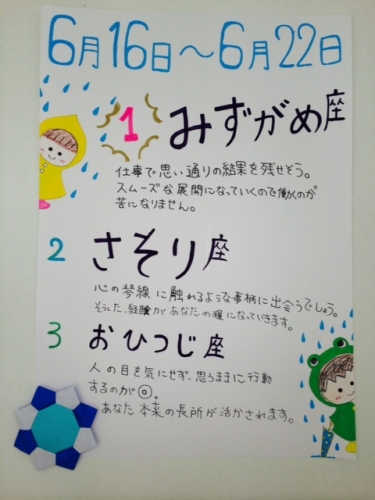 6月16日～6月22日
1 みずがめ座
仕事で思い通りの結果を残せそう。
スムーズな展開になっていくので働くのが
苦になりません。
2 さそり座
心の琴線に触れるような事柄に出会うでしょう。
そうした経験があなたの糧になっていきます。
3 おひつじ座
人の目を気にせず、思うままに行動
するのが◎。
あなた本来の長所が活かされます。